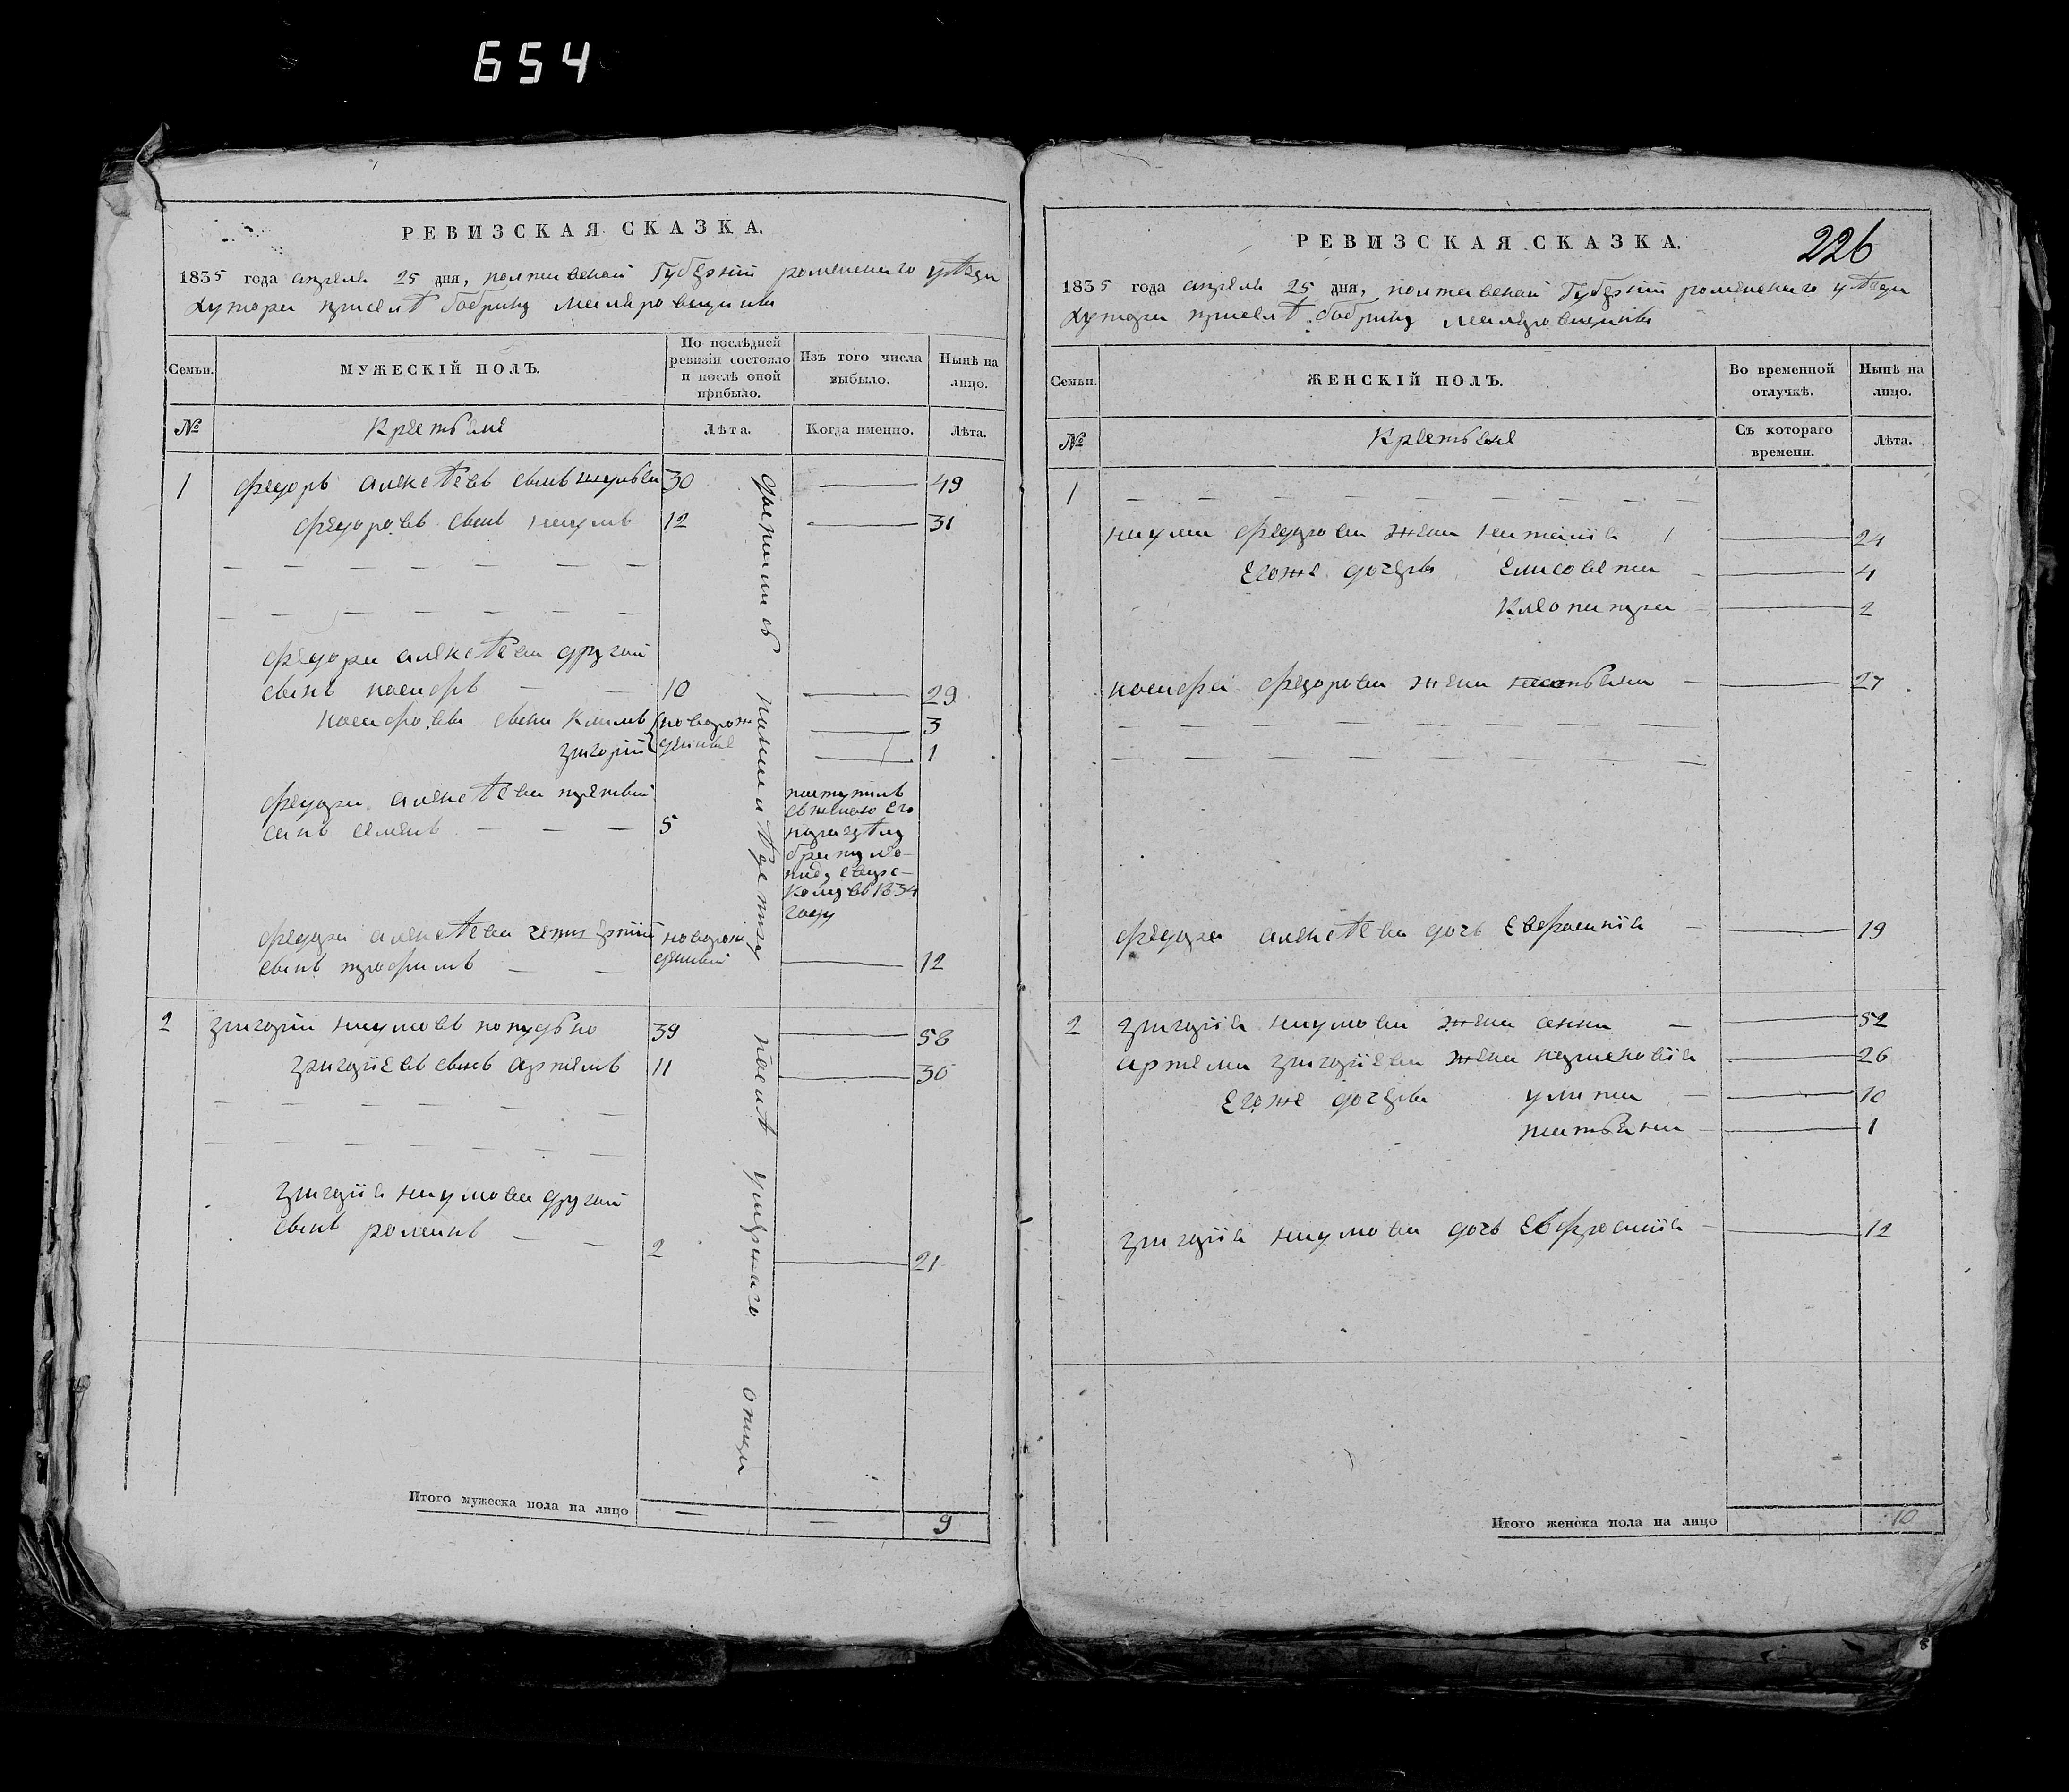 654
РЕВИЗСКАЯ СКАЗКА.
1835 года апреля 25 дня, полтавской Губернии роменского уѣзда
хутора
Семьи.
МУЖЕСКІЙ ПОЛЪ.
По послѣдней ревизіи состояло и послѣ оной прибыло.
Изъ того числа выбыло.
Нынѣ на лицо.
№
Крестьяне
Лѣта.
Когда именно.
Лѣта.
1 федоръ алексѣевъ сынъ 30 — 49
федоровъ сынъ наумъ 12 — 31
федора алексѣева другой
сынъ иосифъ — — 10 — 29
иосифовы сыны новорож — 3
григорій денные — 1
федора алексѣева третьий
сынъ семенъ — — — 5
въ 1834
году
федора алексѣева четвертий новорож
сынъ трофимъ — — денный — 12
достались по наслѣдству
2 григорій наумовъ 39 — 58
григоріевъ сынъ артемъ 11 — 30
григорія наумова другой
сынъ романъ — — 2 — 21
послѣ умершаго отца
Итого мужеска пола на лицо — — 9
РЕВИЗСКАЯ СКАЗКА.
226
1835 года апреля 25 дня, полтавской Губернии роменского уѣзда
хутора
Семьи.
ЖЕНСКІЙ ПОЛЪ.
Во временной отлучкѣ.
Нынѣ на лицо.
№
Крестьяне
Съ котораго времени.
Лѣта.
1
наума федорова жена наталия — 24
Егоже дочери Елисовета — 4
Клеопатра — 2
иосифа федорова жена татьяна — 27
федора алексѣева дочь Евфросинія — 19
2 григорія наумова жена анна — 52
артема григоріева жена парасковія — 26
Егоже дочери улита — 10
татьяна — 1
григорія наумова дочь Евфросинія — 12
Итого женска пола на лицо 10